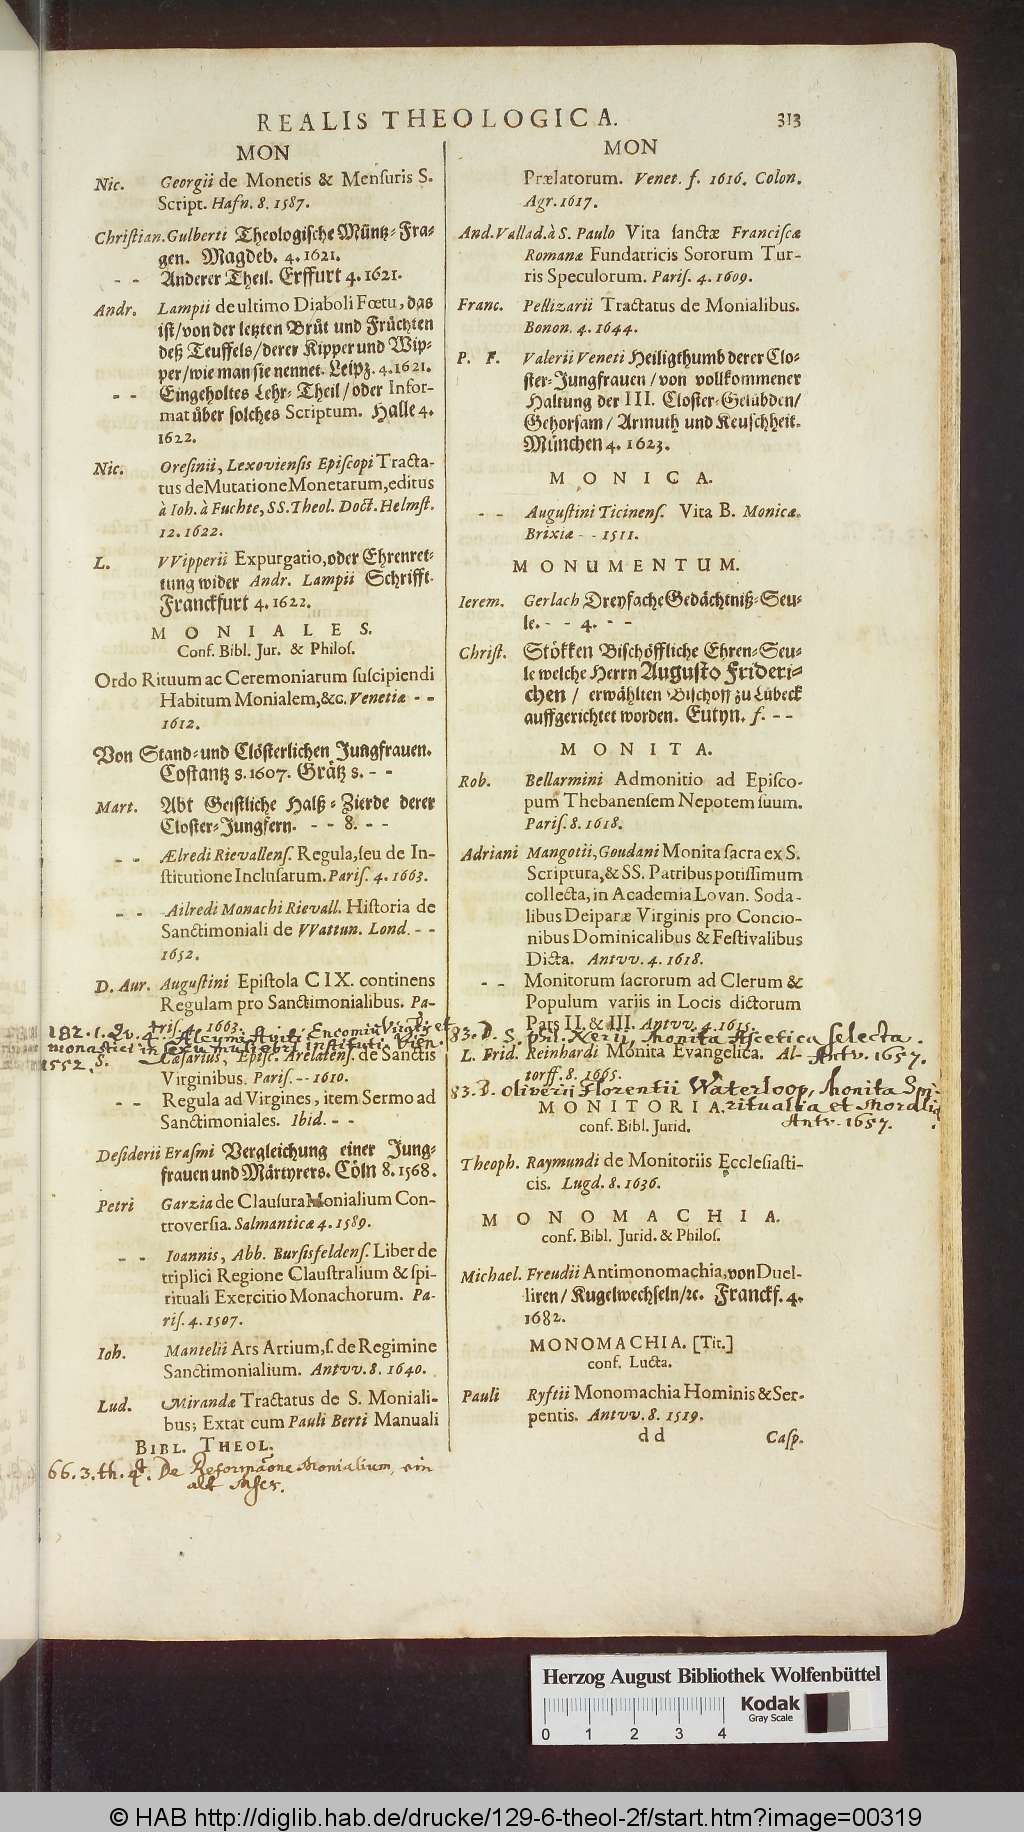 REALIS THEOLOGICA. 313
MON
Nic. Georgii de Monetis & Menſuris S.
Script. Hafn. 8. 1587.
Chriſtian. Gulberti Theologiſche Müntz-Fra-
gen. Magdeb. 4. 1621.
- - Anderer Theil. Erffurt 4. 1621.
Andr. Lampii de ultimo Diaboli Fœtu, das
iſt/von der letzten Brůt und Früchten
deß Teuffels/derer Kipper und Wip-
per/wie man ſie nennet. Leipz. 4. 1621.
- - Eingeholtes Lehr-Theil/oder Infor-
mat über ſolches Scriptum. Halle 4.
1622.
Nic. Oreſinii, Lexovienſis Epiſcopi Tracta-
tus de Mutatione Monetarum, editus
à Ioh. à Fuchte, SS. Theol. Doct. Helmſt.
12. 1622.
L. VVipperii Expurgatio, oder Ehrenret-
tung wider Andr. Lampii Schrifft.
Franckfurt 4. 1622.
MONIALES.
Conf. Bibl. Jur. & Philoſ.
Ordo Rituum ac Ceremoniarum ſuſcipiendi
Habitum Monialem, &c. Venetiæ - -
1612.
Von Stand-und Clöſterlichen Jungfrauen.
Coſtantz 8. 1607. Grätz 8. - -
Mart. Abt Geiſtliche Halß-Zierde derer
Cloſter-Jungfern. - - 8. - -
- - Ælredi Rievallenſ. Regula, ſeu de In-
ſtitutione Incluſarum. Pariſ. 4. 1663.
- - Ailredi Monachi Rievall. Hiſtoria de
Sanctimoniali de VVattun. Lond. - -
1652.
D. Aur. Auguſtini Epiſtola CIX. continens
Regulam pro Sanctimonialibus. Pa-
riſ. 4. 1663.
182. 1. Qv. 4. Alcymi Aviti Encomiũ Virgĩtʒ et
monastici in sexu muliebri instituti. Vien.
1552. 8.
- - Cæſarius, Epiſc. Arelatenſ. de Sanctis
Virginibus. Pariſ. - - 1610.
- - Regula ad Virgines, item Sermo ad
Sanctimoniales. Ibid. - -
Deſiderii Eraſmi Vergleichung einer Jung-
frauen und Märtyrers. Cöln 8. 1568.
Petri Garzia de Clauſura Monialium Con-
troverſia. Salmanticæ 4. 1589.
- - Ioannis, Abb. Burſisfeldenſ. Liber de
triplici Regione Clauſtralium & ſpi-
rituali Exercitio Monachorum. Pa-
riſ. 4. 1507.
Ioh. Mantelii Ars Artium, ſ. de Regimine
Sanctimonialium. Antvv. 8. 1640.
Lud. Mirandæ Tractatus de S. Moniali-
bus; Extat cum Pauli Berti Manuali
BIBL. THEOL.
66. 3. th. 4t. De Reformãone Monialium, ein
alt Mscr.
MON
Prælatorum. Venet. f. 1616. Colon.
Agr. 1617.
And. Vallad. à S. Paulo Vita ſanctæ Franciſcæ
Romanæ Fundatricis Sororum Tur-
ris Speculorum. Pariſ. 4. 1609.
Franc. Pellizarii Tractatus de Monialibus.
Bonon. 4. 1644.
P. F. Valerii Veneti Heiligthumb derer Clo-
ſter-Jungfrauen/von vollkommener
Haltung der III. Cloſter-Gelübden/
Gehorſam/Armuth und Keuſchheit.
München 4. 1623.
MONICA.
- - Auguſtini Ticinenſ. Vita B. Monicæ.
Brixiæ - - 1511.
MONUMENTUM.
Ierem. Gerlach Dreyfache Gedächtniß-Seu-
le. - - 4. - -
Chriſt. Stökken Biſchöffliche Ehren-Seu-
le welche Herrn Auguſto Frideri-
chen/ erwählten Biſchoff zu Lübeck
auffgerichtet worden. Eutyn. f. - -
MONITA.
Rob. Bellarmini Admonitio ad Epiſco-
pum Thebanenſem Nepotem ſuum.
Pariſ. 8. 1618.
Adriani Mangotii, Goudani Monita ſacra ex S.
Scriptura, & SS. Patribus potiſſimum
collecta, in Academia Lovan. Soda-
libus Deiparæ Virginis pro Concio-
nibus Dominicalibus & Feſtivalibus
Dicta. Antvv. 4. 1618.
- - Monitorum ſacrorum ad Clerum &
Populum variis in Locis dictorum
Pars II. & III. Antvv. 4. 1615.
83. D. S. Phil. Nerii, Monita Ascetica selecta.
Antv. 1657.
L. Frid. Reinhardi Monita Evangelica. Al-
torff. 8. 1665.
83. D. Oliverij Florentii Waterloop, Monita Spi-
ritualia et Moralia
Antv. 1657.
MONITORIA.
conf. Bibl. Jurid.
Theoph. Raymundi de Monitoriis Eccleſiaſti-
cis. Lugd. 8. 1636.
MONOMACHIA.
conf. Bibl. Jurid. & Philoſ.
Michael. Freudii Antimonomachia, von Duel-
liren/Kugelwechſeln/ꝛc. Franckf. 4.
1682.
MONOMACHIA. [Tit.]
conf. Lucta.
Pauli Ryftii Monomachia Hominis & Ser-
pentis. Antvv. 8. 1519.
dd Caſp.
Herzog August Bibliothek Wolfenbüttel
Kodak
Gray Scale
0 1 2 3 4
© HAB http://diglib.hab.de/drucke/129-6-theol-2f/start.htm?image=00319